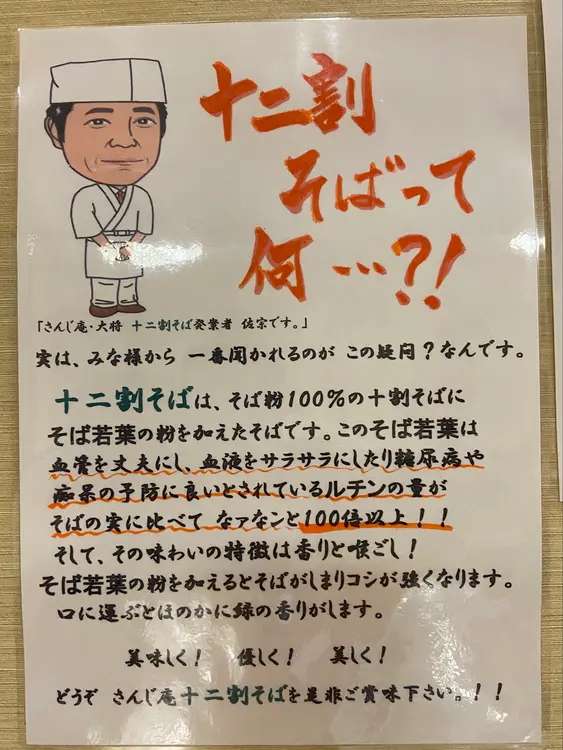 十二割
そばって
何…?!
「さんじ庵・大将 十二割そば発案者 佐宗です。」
実は、みな様から 一番聞かれるのが この疑問?なんです。
十二割そばは、そば粉100%の十割そばに
そば若葉の粉を加えたそばです。このそば若葉は
血管を丈夫にし、血液をサラサラにしたり糖尿病や
痴呆の予防に良いとされているルチンの量が
そばの実に比べて なァなンと100倍以上!!
そして、その味わいの特徴は香りと喉ごし!
そば若葉の粉を加えるとそばがしまりコシが強くなります。
口に運ぶとほのかに緑の香りがします。
美味しく! 優しく! 美しく!
どうぞ さんじ庵十二割そばを是非ご賞味下さい。!!